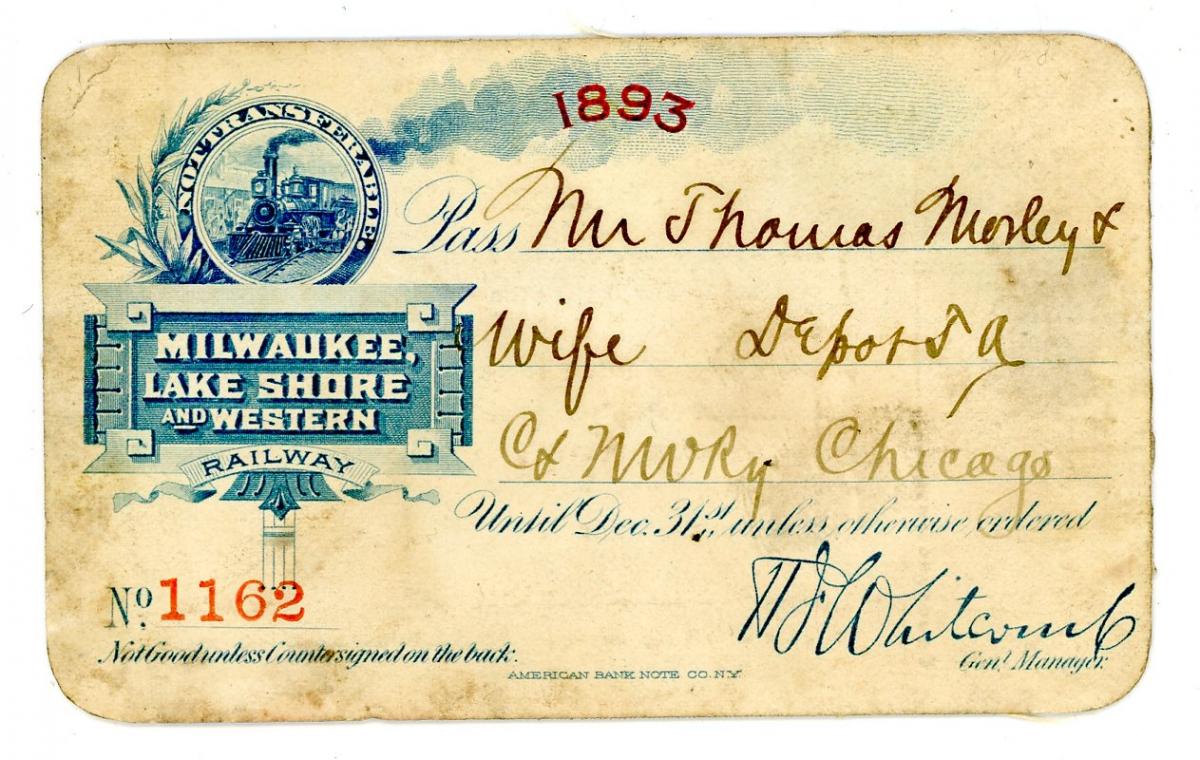 1893
NOT TRANSFERABLE.
Pass Mr Thomas Morley &
Wife Depot T A
C & NW Ry Chicago
Until Dec. 31st, unless otherwise ordered
MILWAUKEE,
LAKE SHORE
AND WESTERN
RAILWAY
No. 1162
Not Good unless Countersigned on the back.
H F Whitcomb
Genl. Manager.
AMERICAN BANK NOTE CO. N.Y.